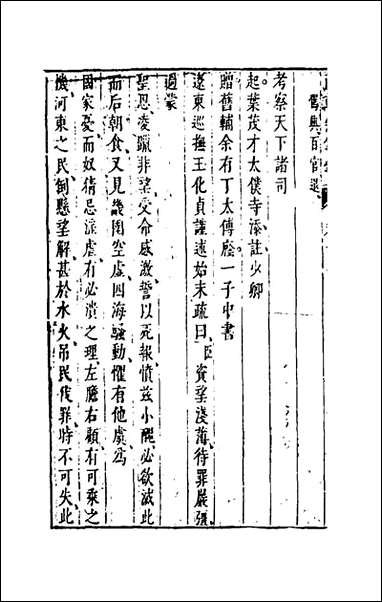 駕與百官還
考察天下諸司
起葉茂才太僕寺添註少卿
贈舊輔余有丁太傅廕一子中書
遼東巡撫王化貞謹述始末疏曰臣資望淺薄待罪嚴疆
過蒙
聖恩凌躐非望受命感激誓以死報憤茲小醜必欲滅此
而后朝食又見畿園空虛四海騷動懼有他虞為
國家憂而奴猜忌淫虐有必潰之理左膽右顧有可乘之
機河東之民倒懸望解甚於水火吊民伐罪時不可失此